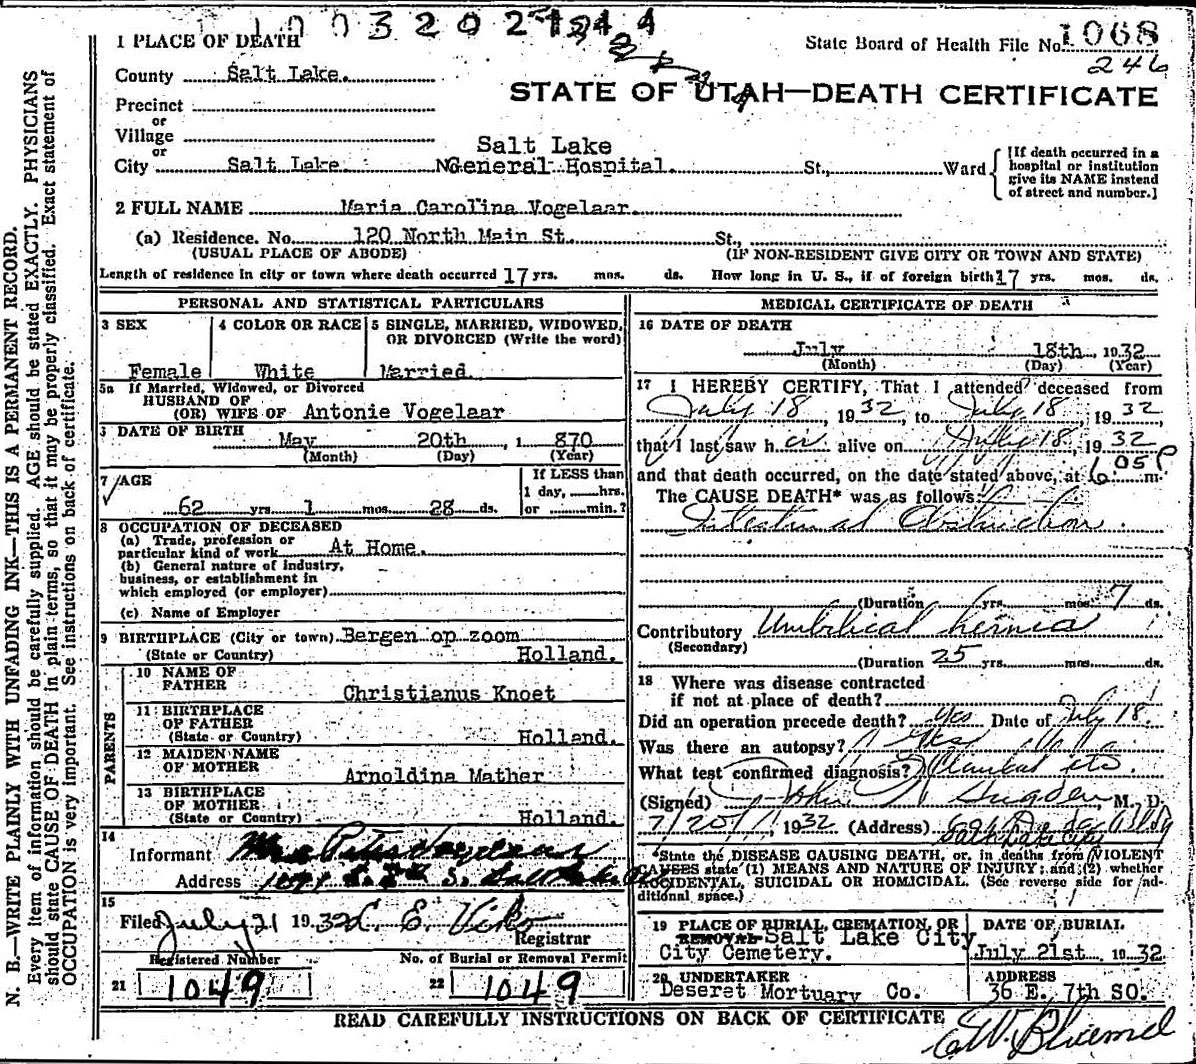 1003202
State Board of Health File No. 1068
246
STATE OF UTAH—DEATH CERTIFICATE
1 PLACE OF DEATH
County Salt Lake.
Precinct
or
Village
or
City Salt Lake No. Salt Lake General Hospital. St., Ward
[If death occurred in a hospital or institution give its NAME instead of street and number.]
2 FULL NAME Maria Carolina Vogelaar.
(a) Residence. No. 120 North Main St. St.,
(USUAL PLACE OF ABODE) (IF NON-RESIDENT GIVE CITY OR TOWN AND STATE)
Length of residence in city or town where death occurred 17 yrs. mos. ds. How long in U. S., if of foreign birth 17 yrs. mos. ds.
PERSONAL AND STATISTICAL PARTICULARS
3 SEX
Female
4 COLOR OR RACE
White
5 SINGLE, MARRIED, WIDOWED, OR DIVORCED (Write the word)
Married.
5a If Married, Widowed, or Divorced
HUSBAND OF
(OR) WIFE OF Antonie Vogelaar
DATE OF BIRTH
May 20th, 1 870
(Month) (Day) (Year)
7 AGE
62 yrs. 1 mos. 28 ds.
If LESS than
1 day, hrs.
or min.?
8 OCCUPATION OF DECEASED
(a) Trade, profession or
particular kind of work At Home.
(b) General nature of industry,
business, or establishment in
which employed (or employer)
(c) Name of Employer
9 BIRTHPLACE (City or town) Bergen op zoom
(State or Country) Holland.
PARENTS
10 NAME OF
FATHER Christianus Knoet
11 BIRTHPLACE
OF FATHER
(State or Country) Holland.
12 MAIDEN NAME
OF MOTHER Arnoldina Mather
13 BIRTHPLACE
OF MOTHER
(State or Country) Holland.
14
Informant
Address
15
Filed July 21 1932 L. E. Viko
Registrar
Registered Number
21 1049
No. of Burial or Removal Permit
22 1049
MEDICAL CERTIFICATE OF DEATH
16 DATE OF DEATH
July 18th, 1932
(Month) (Day) (Year)
17 I HEREBY CERTIFY, That I attended deceased from
July 18, 1932 to July 18, 1932
that I last saw her alive on July 18, 1932
and that death occurred, on the date stated above, at 6:05 P m.
The CAUSE DEATH* was as follows:
Intestinal Obstruction.
(Duration yrs. mos. 7 ds.
Contributory Umbilical hernia
(Secondary)
(Duration 25 yrs. mos. ds.
18 Where was disease contracted
if not at place of death?
Did an operation precede death? Yes Date of July 18.
Was there an autopsy?
What test confirmed diagnosis?
(Signed) John Sugden, M. D.
7/20/, 1932 (Address)
*State the DISEASE CAUSING DEATH, or, in deaths from VIOLENT
CAUSES state (1) MEANS AND NATURE OF INJURY; and (2) whether
ACCIDENTAL, SUICIDAL OR HOMICIDAL. (See reverse side for ad-
ditional space.)
19 PLACE OF BURIAL, CREMATION, OR
REMOVAL Salt Lake City
City Cemetery.
DATE OF BURIAL
July 21st. 1932.
20 UNDERTAKER
Deseret Mortuary Co.
ADDRESS
36 E. 7th SO.
READ CAREFULLY INSTRUCTIONS ON BACK OF CERTIFICATE
E.W. Bluemel
N. B.—WRITE PLAINLY WITH UNFADING INK—THIS IS A PERMANENT RECORD.
Every item of information should be carefully supplied. AGE should be stated EXACTLY. PHYSICIANS
should state CAUSE OF DEATH in plain terms, so that it may be properly classified. Exact statement of
OCCUPATION is very important. See instructions on back of certificate.